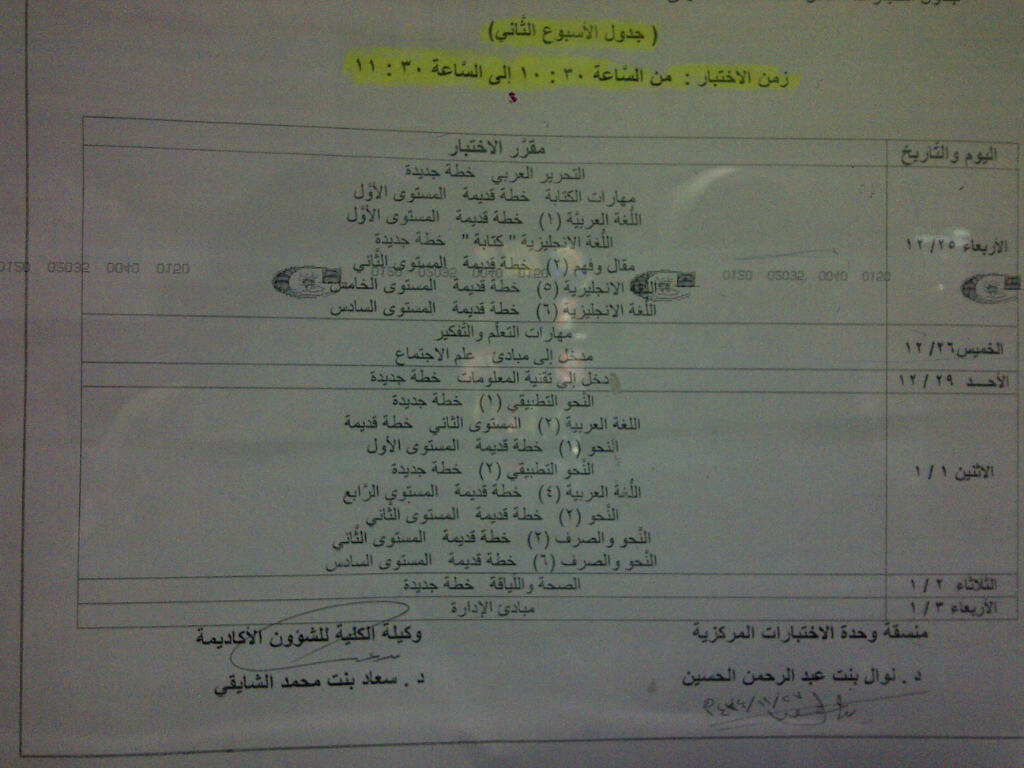 ( جدول الأسبوع الثَّاني)
زمن الاختبار : من السَّاعة ٣٠ : ١٠ إلى السَّاعة ٣٠ : ١١
اليوم والتَّاريخ مقرَّر الاختبار
الأربعاء ١٢/٢٥
التحرير العربي خطة جديدة
مهارات الكتابة خطة قديمة المستوى الأوَّل
اللُّغة العربيَّة (١) خطة قديمة المستوى الأوَّل
اللُّغة الإنجليزية " كتابة " خطة جديدة
مقال وفهم (٢) خطة قديمة المستوى الثَّاني
الانجليزية (٥) خطة قديمة المستوى الخامس
اللُّغة الانجليزية (٦) خطة قديمة المستوى السادس
0150 02032 0040 0120
الخميس ١٢/٢٦
مهارات التعلُّم والتَّفكير
مدخل إلى مبادئ علم الاجتماع
الأحـــد ١٢/٢٩ دخل إلى تقنية المعلومات خطة جديدة
الاثنين ١/١
النَّحو التطبيقي (١) خطة جديدة
اللغة العربية (٢) المستوى الثاني خطة قديمة
النحو (١) خطة قديمة المستوى الأول
النَّحو التطبيقي (٢) خطة جديدة
اللُّغة العربية (٤) خطة قديمة المستوى الرَّابع
النَّحو (٢) خطة قديمة المستوى الثَّاني
النَّحو والصرف (٢) خطة قديمة المستوى الثَّاني
النَّحو والصرف (٦) خطة قديمة المستوى السادس
الثلاثاء ١/٢ الصحة واللِّياقة خطة جديدة
الأربعاء ١/٣ مبادئ الإدارة
منسقة وحدة الاختبارات المركزية وكيلة الكلية للشؤون الأكاديمة
د . نوال بنت عبد الرحمن الحسين د . سعاد بنت محمد الشايقي